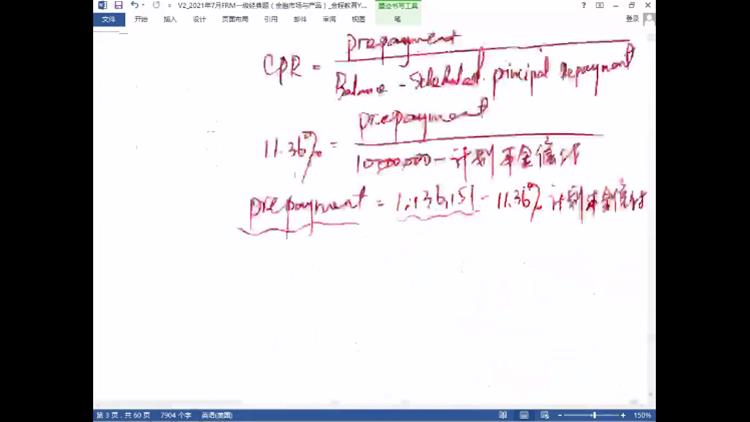 V2_2021年7月FRM一级经典题（金融市场与产品）_金程教育Y...
墨迹书写工具
文件 开始 插入 设计 页面布局 引用 邮件 审阅 视图 笔 登录
prepayment
CPR =
Balance - Scheduled principal repayment
prepayment
11.36% =
10,000,000 - 计划本金偿付
prepayment = 1,136,151 - 11.36% 计划本金偿付
第 3 页，共 60 页 7904 个字 英语(美国) 150%